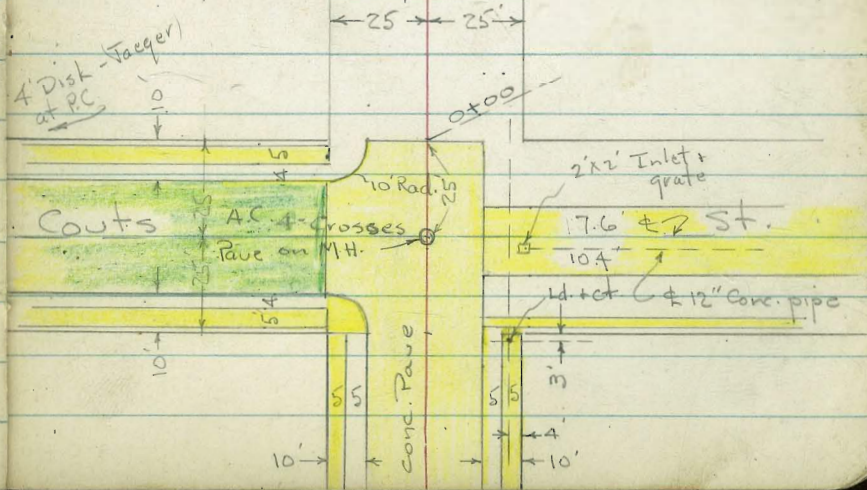 25' 25'
4' Disk - Jaeger)
at P.C.
10'
0+00
5
4
10' Rad.
25'
2'x2' Inlet +
grate
Couts
25'
A.C. 4-Crosses
Pave on M.H.
7.6' ℄ St.
10.4
25'
4'
5'
Ld. + ct.
℄ 12" Conc. pipe
10'
3'
conc. Pave
5 5
5 5
4'
10'
10'